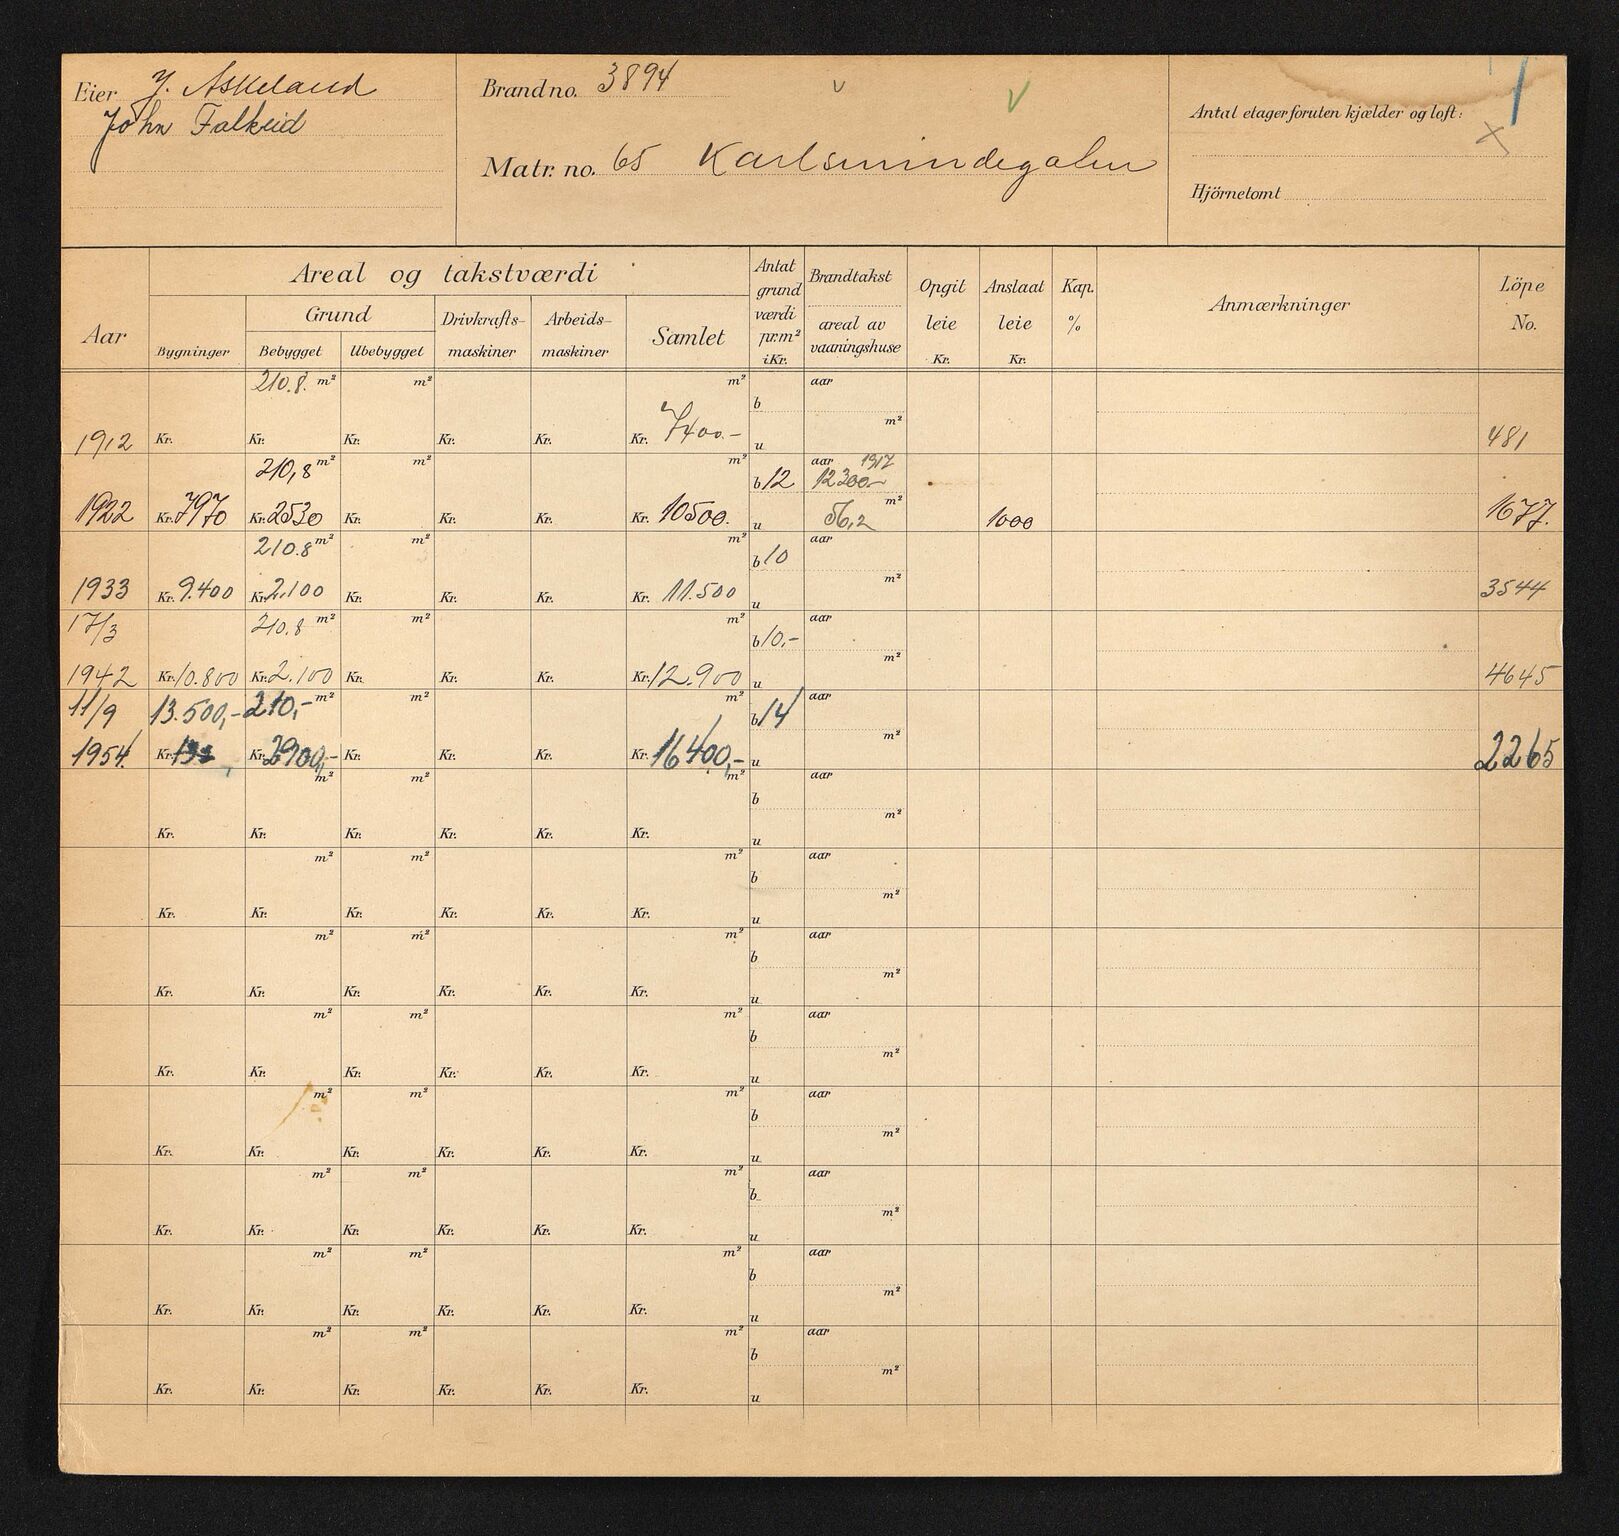 Eier J. Askeland
John Falkeid
Brand no. 3894
Matr. no. 65 Karlsmindegaten
Antal etager foruten kjælder og loft:
Hjörnetomt
Aar
Areal og takstværdi
Bygninger
Grund
Bebygget
Ubebygget
Drivkrafts-maskiner
Arbeids-maskiner
Samlet
Antat grund værdi pr. m² i Kr.
Brandtakst
areal av vaaningshuse
Opgit leie Kr.
Anslaat leie Kr.
Kap. %
Anmærkninger
Löpe No.
210.8. m² m² m² aar
b
m²
1912 Kr. Kr. Kr. Kr. Kr. Kr. 7400.- u 481
210,8 m² m² m² aar 1917
b 12 12300.-
m²
1922 Kr. 7970 Kr. 2530 Kr. Kr. Kr. Kr. 10500. u 56,2 1000 1677.
210.8 m² m² m² aar
b 10
m²
1933 Kr. 9.400 Kr. 2.100 Kr. Kr. Kr. Kr. 11.500 u 3544
17/3 210.8 m² m² m² aar
b 10,-
m²
1942 Kr. 10.800 Kr. 2.100 Kr. Kr. Kr. Kr. 12.900 u 4645
11/9 13.500,- 210,- m² m² m² aar
b 14
m²
1954. Kr. Kr. 2900,- Kr. Kr. Kr. Kr. 16400,- u 2265
m² m² m² aar
b
m²
Kr. Kr. Kr. Kr. Kr. Kr. u
m² m² m² aar
b
m²
Kr. Kr. Kr. Kr. Kr. Kr. u
m² m² m² aar
b
m²
Kr. Kr. Kr. Kr. Kr. Kr. u
m² m² m² aar
b
m²
Kr. Kr. Kr. Kr. Kr. Kr. u
m² m² m² aar
b
m²
Kr. Kr. Kr. Kr. Kr. Kr. u
m² m² m² aar
b
m²
Kr. Kr. Kr. Kr. Kr. Kr. u
m² m² m² aar
b
m²
Kr. Kr. Kr. Kr. Kr. Kr. u
m² m² m² aar
b
m²
Kr. Kr. Kr. Kr. Kr. Kr. u